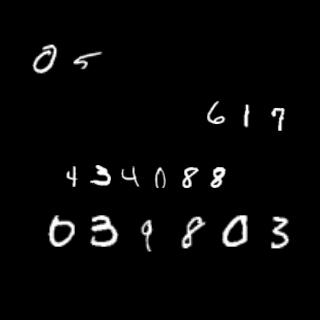 05
617
434088
039803